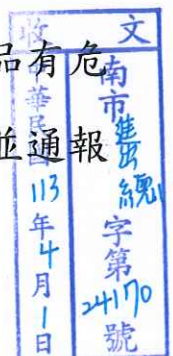 品有危
並通報
收文
南市總字第24170號
中華民國113年4月1日